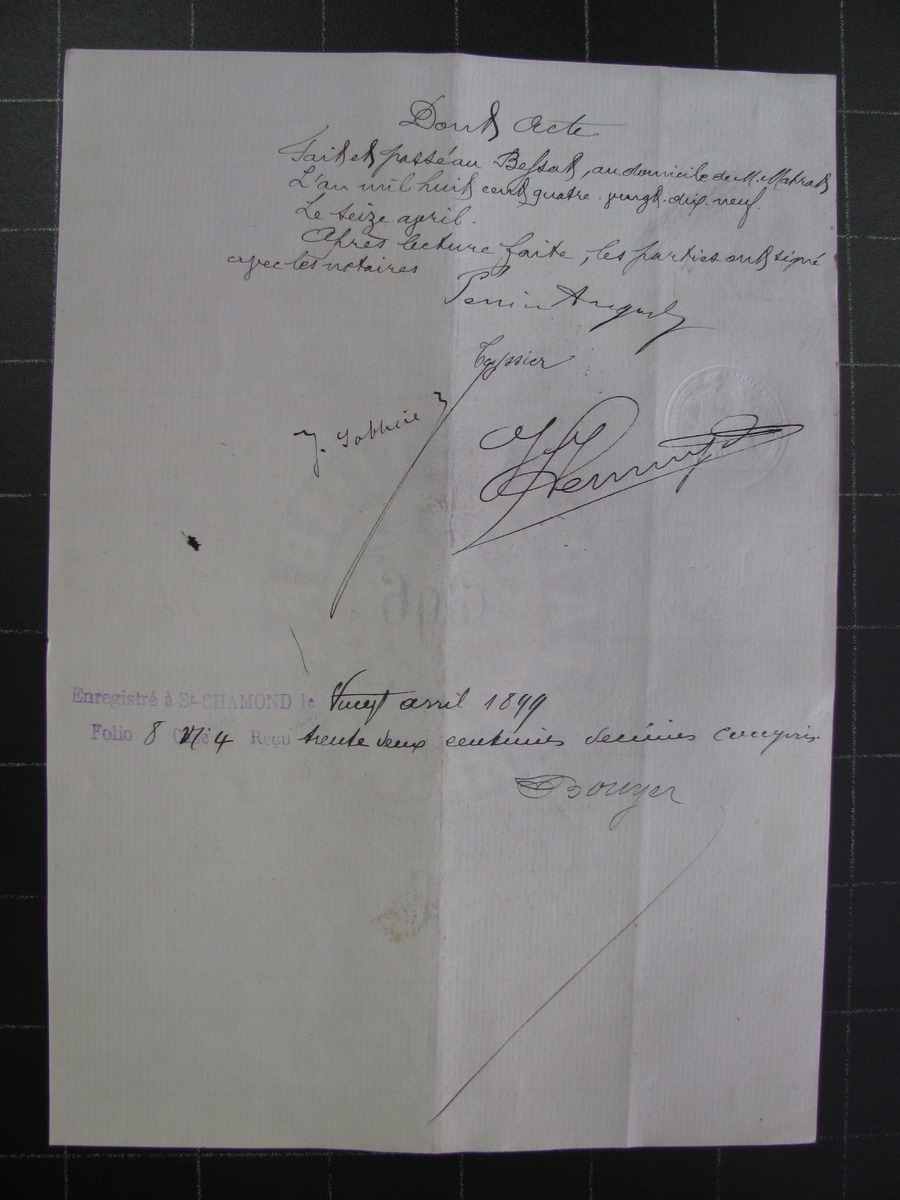 Dont acte
Fait et passé au Bessat, au domicile de M. Matrat
L'an mil huit cent quatre-vingt-dix-neuf.
Le seize avril.
Après lecture faite, les parties ont signé
avec les notaires
Perrin
Teyssier
J.
Enregistré à St-CHAMOND le Vingt avril 1899
Folio 8 Case 4 Reçu trente deux centimes décimes compris.
Bouyer